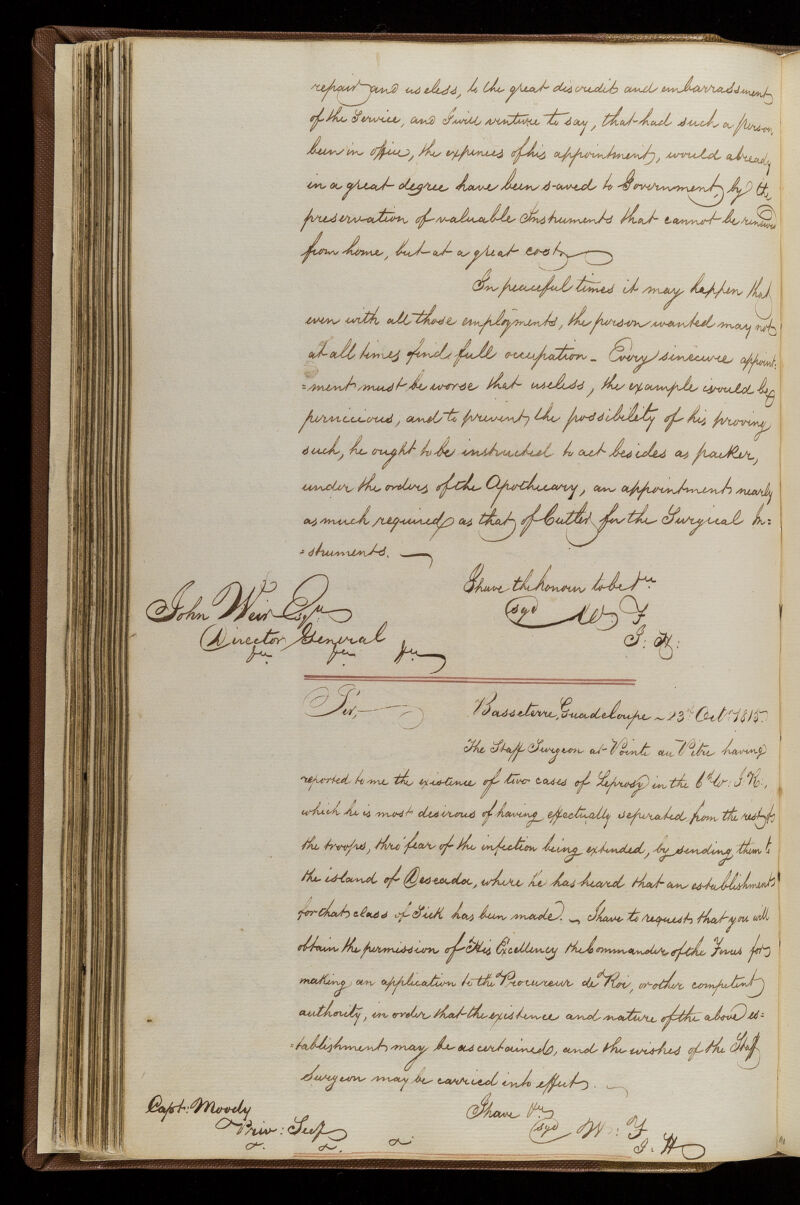 repair and useless, to the great discredit and embarrassment
of the Service, and I will venture to say, that had such a person
been in office, the expences of his appointment, would already
in a great degree have been saved to Government, by the
preservation of valuable Instruments that cannot be renewed
from home, but at a great cost,
In peaceful times it may happen that
even with all those employments, the person wanted may not
at all times find full occupation - Every sinecure appoint:
=ment must be worse that useless, the example would be
pernicious, and to prevent the possibility of his proving
such, he ought to be instructed to act besides as packer,
under the orders of the Apothecary, an appointment nearly
as much required as that of Cutler for the Surgical In=
=struments.
I have the honour to be &c
(sgd W F
I: H:
John Weir Esqr
Director General
&c &c &c
Sir, Basseterre, Guadeloupe - 23d Octr 1815.
The Staff Surgeon at Pointe au Petre having
reported to me the existence of two cases of Leprosy in the 6th W: I R.,
which he is most desirous of having effectually seperated from the rest of
the troops, thro' fear of the infection being extended, by sending them to
the island of Deseada, where he has heard that an establishment
for that class of Sick has been made. - I have to request that you will
obtain the permission of His Excellency the Commander of the Forces for
making an application to the Procureur de Roi, or other competent
authority, in order that the existence and nature of the above es=
=tablishment may be ascertained, and the wishes of the Staff
Surgeon may be carried into effect.
I have &c
(sgd W: F
I. H
Capt: Moody
Priv: Secy
&c &c &c